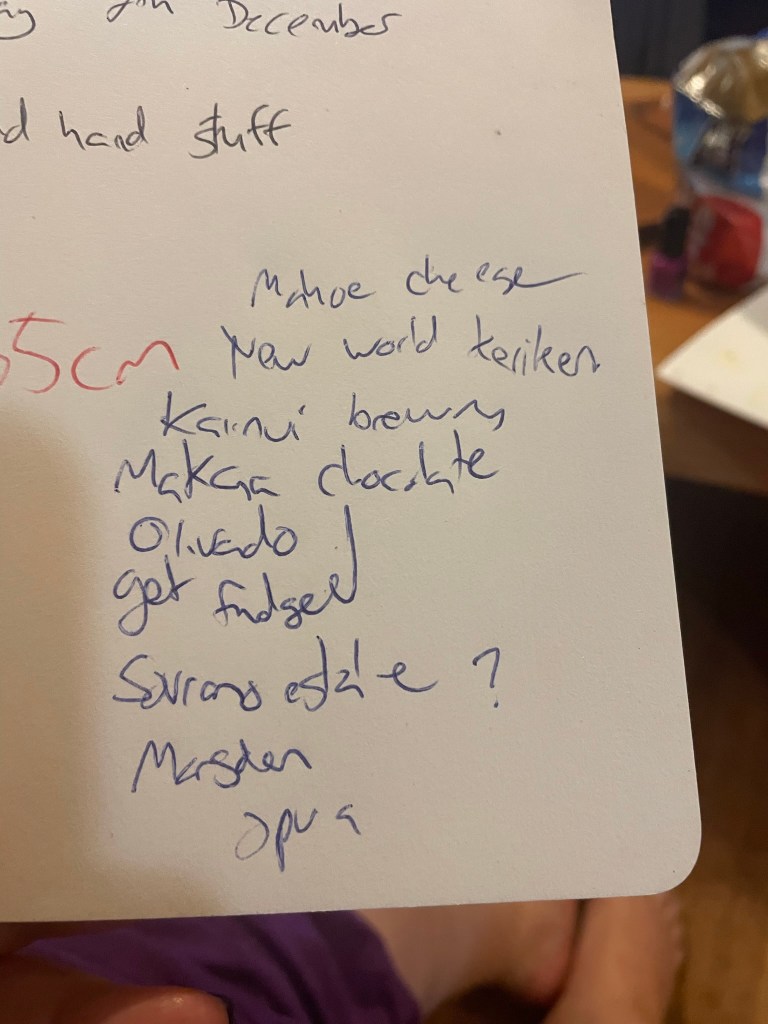 December
hand stuff
Mahoe cheese
55cm New world kerikeri
Kainui brewing
Makana chocolate
Olivado
get fudge
Sovrano estate ?
Marsden
opua